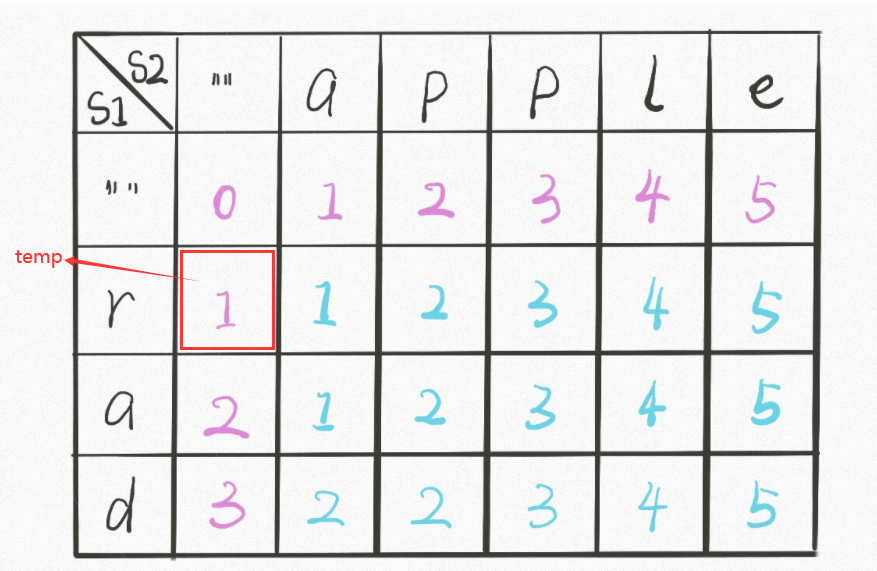 S2
S1 "" a p p l e
"" 0 1 2 3 4 5
temp
r 1 1 2 3 4 5
a 2 1 2 3 4 5
d 3 2 2 3 4 5